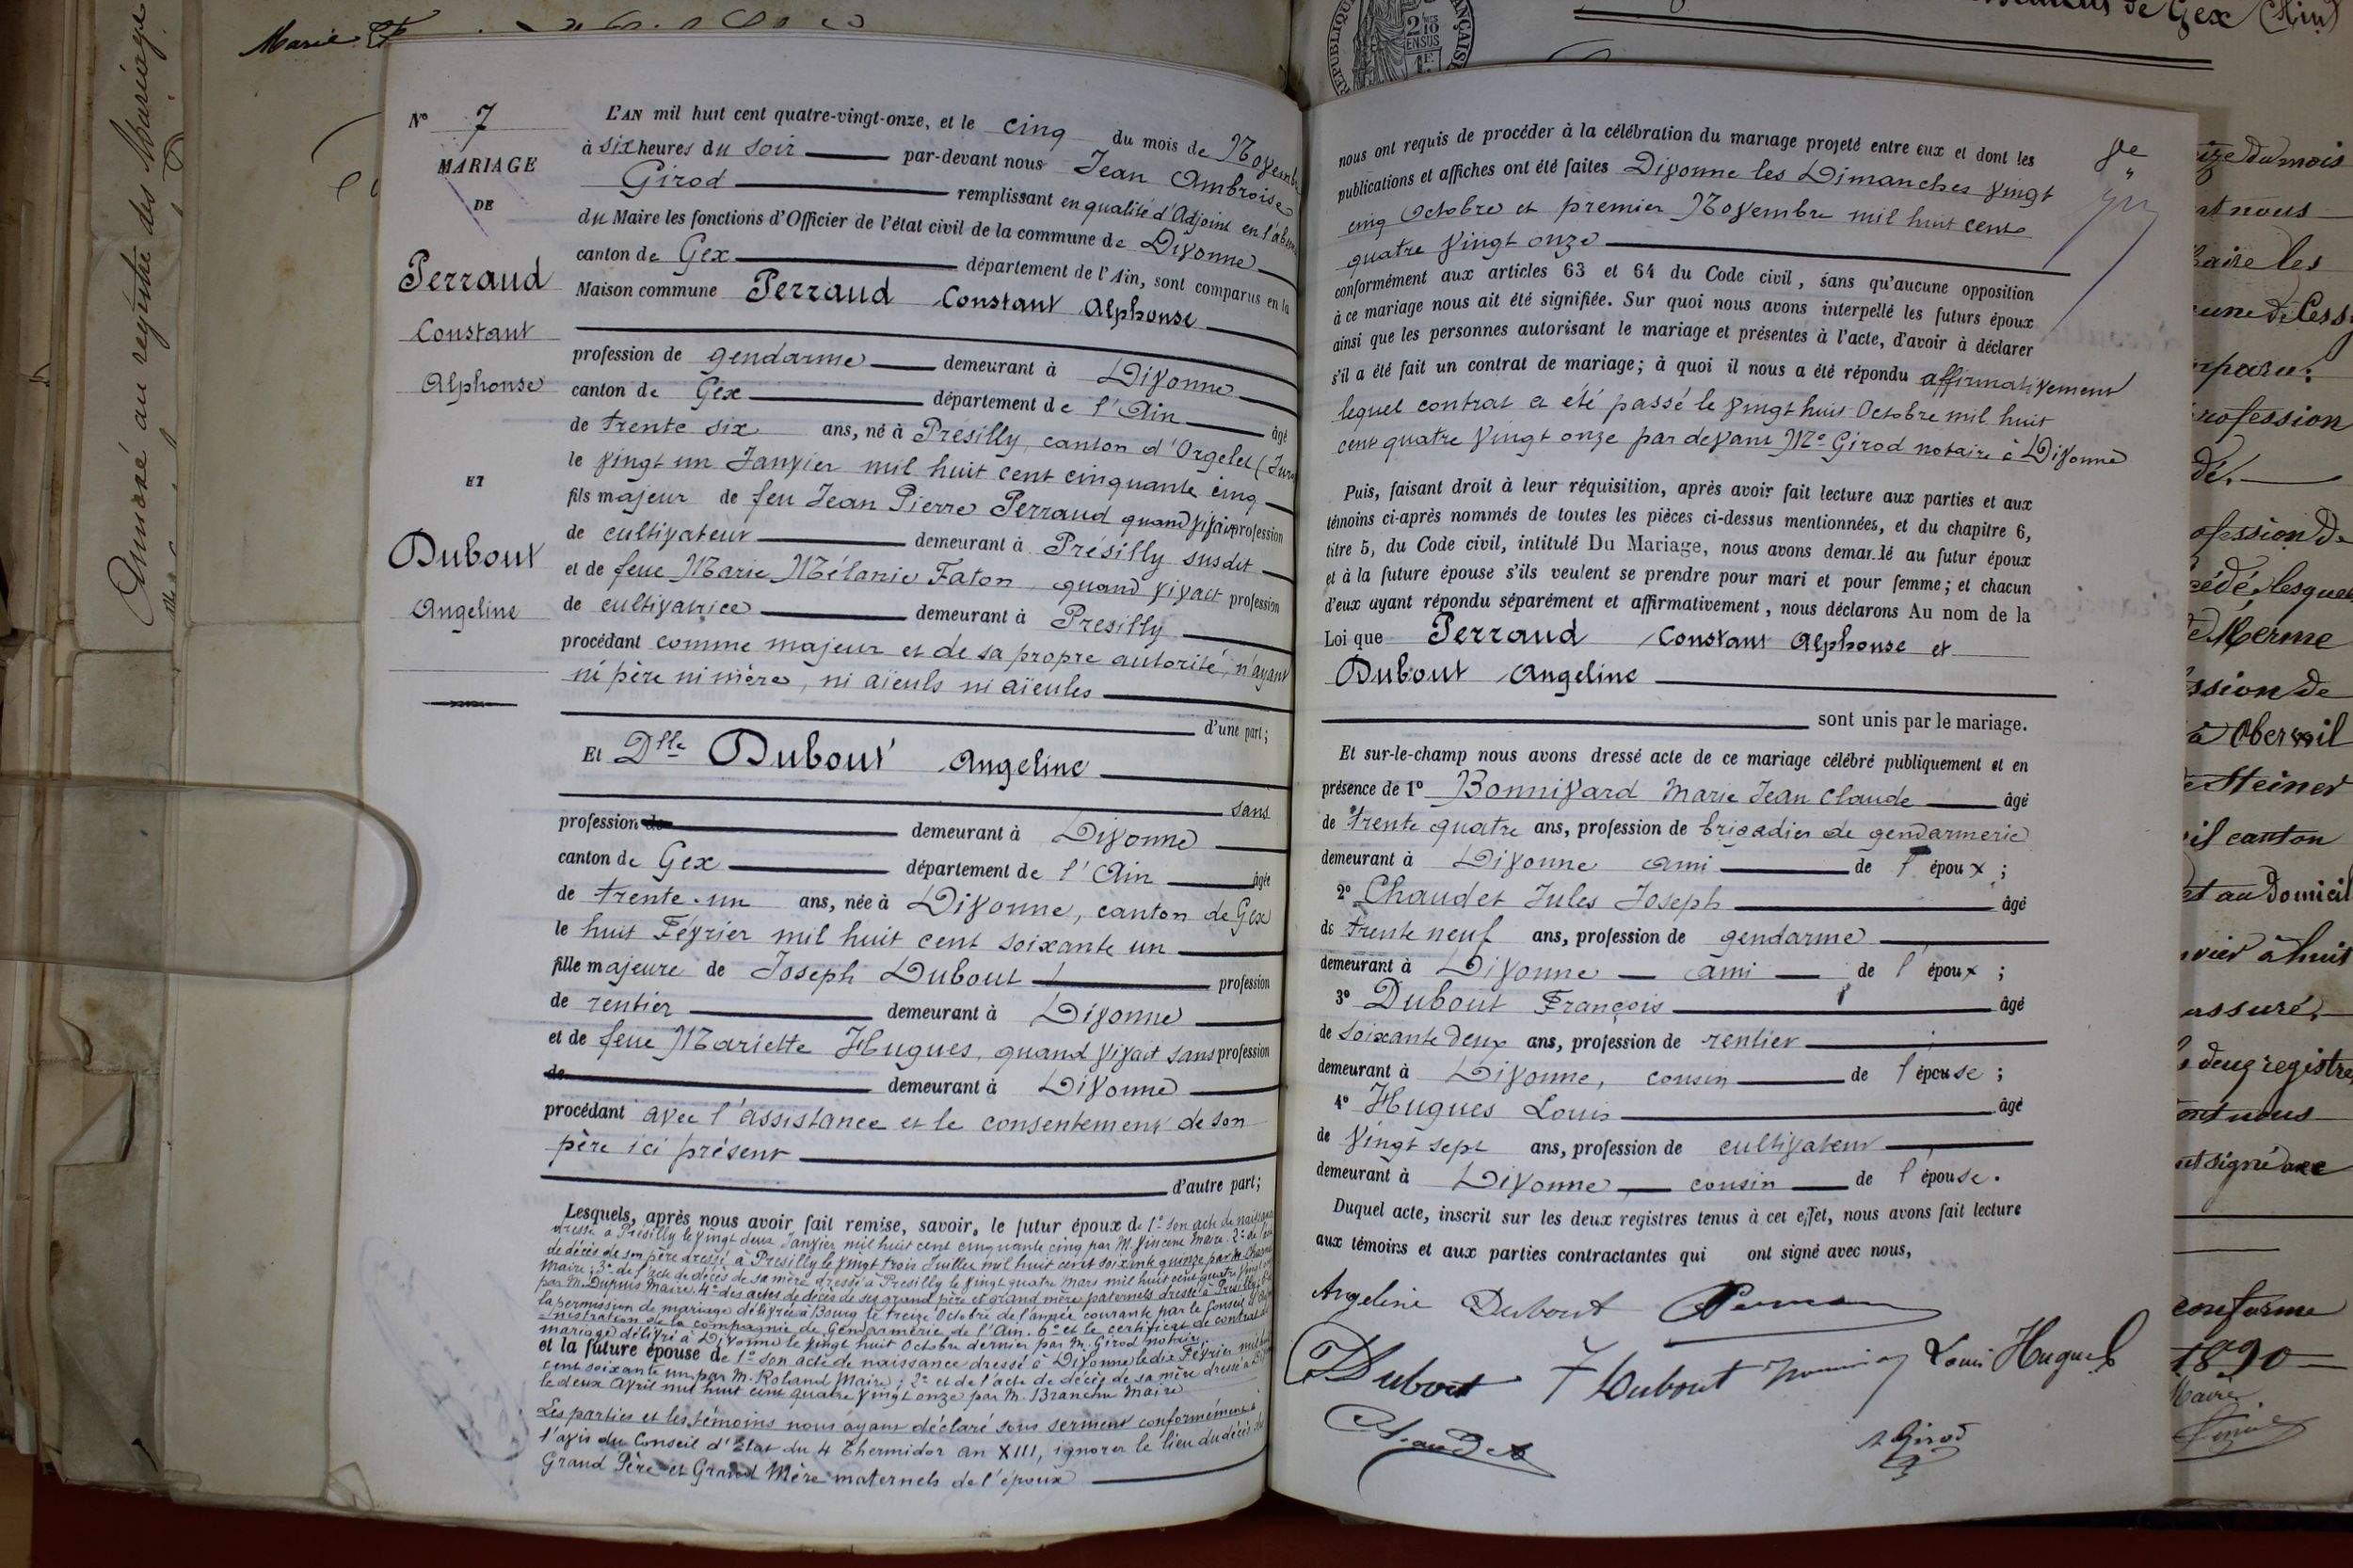 Marie
Annexé au registre des Mariages
N° 7
MARIAGE
DE
Perraud
Constant
Alphonse
ET
Dubout
Angeline
L'AN mil huit cent quatre-vingt-onze, et le cinq du mois de Novembre
à six heures du soir par-devant nous Jean Ambroise
Girod remplissant en qualité d'Adjoint en l'abs
du Maire les fonctions d'Officier de l'état civil de la commune de Divonne
canton de Gex département de l'Ain, sont comparus en la
Maison commune Perraud Constant Alphonse
profession de gendarme demeurant à Divonne
canton de Gex département de l'Ain âgé
de trente six ans, né à Presilly, canton d'Orgelet (Jura
le vingt un Janvier mil huit cent cinquante cinq
fils majeur de feu Jean Pierre Perraud quand vivait profession
de cultivateur demeurant à Présilly susdit
et de feue Marie Mélanie Faton, quand vivait profession
de cultivatrice demeurant à Presilly
procédant comme majeur et de sa propre autorité, n'ayant
ni père ni mère, ni aïeuls ni aïeules
d'une part;
Et Dlle Dubout Angeline
sans
profession de demeurant à Divonne
canton de Gex département de l'Ain âgée
de trente-un ans, née à Divonne, canton de Gex
le huit Février mil huit cent soixante un
fille majeure de Joseph Dubout profession
de rentier demeurant à Divonne
et de feue Mariette Hugues, quand vivait sans profession
de demeurant à Divonne
procédant avec l'assistance et le consentement de son
père ici présent
d'autre part;
Lesquels, après nous avoir fait remise, savoir, le futur époux de 1° son acte de naissance
dressé à Présilly le vingt deux Janvier mil huit cent cinquante cinq par M. Vincent Maire. 2° de l'acte
de décès de son père dressé à Presilly le vingt trois Juillet mil huit cent soixante quinze par M.
Maire; 3° de l'acte de décès de sa mère dressé à Presilly le vingt quatre Mars mil huit cent quatre vingt
par M. Dupuis Maire, 4° des actes de décès de ses grand père et grand mère paternels dressé à Presilly,
la permission de mariage délivrée à Bourg le treize Octobre de l'année courante par le Conseil d'Admi
nistration de la compagnie de Gendarmerie de l'Ain. 6° et le certificat de contrat de
mariage délivré à Divonne le vingt huit Octobre dernier par M. Girod notaire
et la future épouse de 1° son acte de naissance dressé à Divonne le dix Février mil huit
cent soixante un par M. Roland Maire; 2° et de l'acte de décès de sa mère dressé à
le deux Avril mil huit cent quatre vingt onze par M. Branchu Maire
Les parties et les témoins nous ayant déclaré sous serment conformément à
l'avis du Conseil d'Etat du 4 Thermidor an XIII, ignorer le lieu du décès des
Grand Père et Grand Mère maternels de l'époux
nous ont requis de procéder à la célébration du mariage projeté entre eux et dont les
publications et affiches ont été faites Divonne les Dimanches vingt
cinq Octobre et premier Novembre mil huit cent
quatre vingt onze
conformément aux articles 63 et 64 du Code civil, sans qu'aucune opposition
à ce mariage nous ait été signifiée. Sur quoi nous avons interpellé les futurs époux
ainsi que les personnes autorisant le mariage et présentes à l'acte, d'avoir à déclarer
s'il a été fait un contrat de mariage; à quoi il nous a été répondu affirmativement
lequel contrat a été passé le vingt huit Octobre mil huit
cent quatre vingt onze par devant Me Girod notaire à Divonne
Puis, faisant droit à leur réquisition, après avoir fait lecture aux parties et aux
témoins ci-après nommés de toutes les pièces ci-dessus mentionnées, et du chapitre 6,
titre 5, du Code civil, intitulé Du Mariage, nous avons demandé au futur époux
et à la future épouse s'ils veulent se prendre pour mari et pour femme; et chacun
d'eux ayant répondu séparément et affirmativement, nous déclarons Au nom de la
Loi que Perraud Constant Alphonse et
Dubout Angeline
sont unis par le mariage.
Et sur-le-champ nous avons dressé acte de ce mariage célébré publiquement et en
présence de 1° Bonnivard Marie Jean Claude âgé
de trente quatre ans, profession de brigadier de gendarmerie
demeurant à Divonne ami de l'époux;
2° Chaudet Jules Joseph âgé
de trente neuf ans, profession de gendarme
demeurant à Divonne ami de l'époux;
3° Dubout François âgé
de soixante deux ans, profession de rentier
demeurant à Divonne, cousin de l'épouse;
4° Hugues Louis âgé
de vingt sept ans, profession de cultivateur
demeurant à Divonne, cousin de l'épouse.
Duquel acte, inscrit sur les deux registres tenus à cet effet, nous avons fait lecture
aux témoins et aux parties contractantes qui ont signé avec nous,
Angeline Dubout
Dubout F Dubout Louis Hugues
Chaudet
A Girod
de Gex (Ain)
du mois
nous
Maire les
profession
ofession de
lesquels
Merme
ssion de
à Oberwil
Steiner
canton
au Domicil
à huit
assuré
registre
nous
signé avec
conforme
1890
Maire